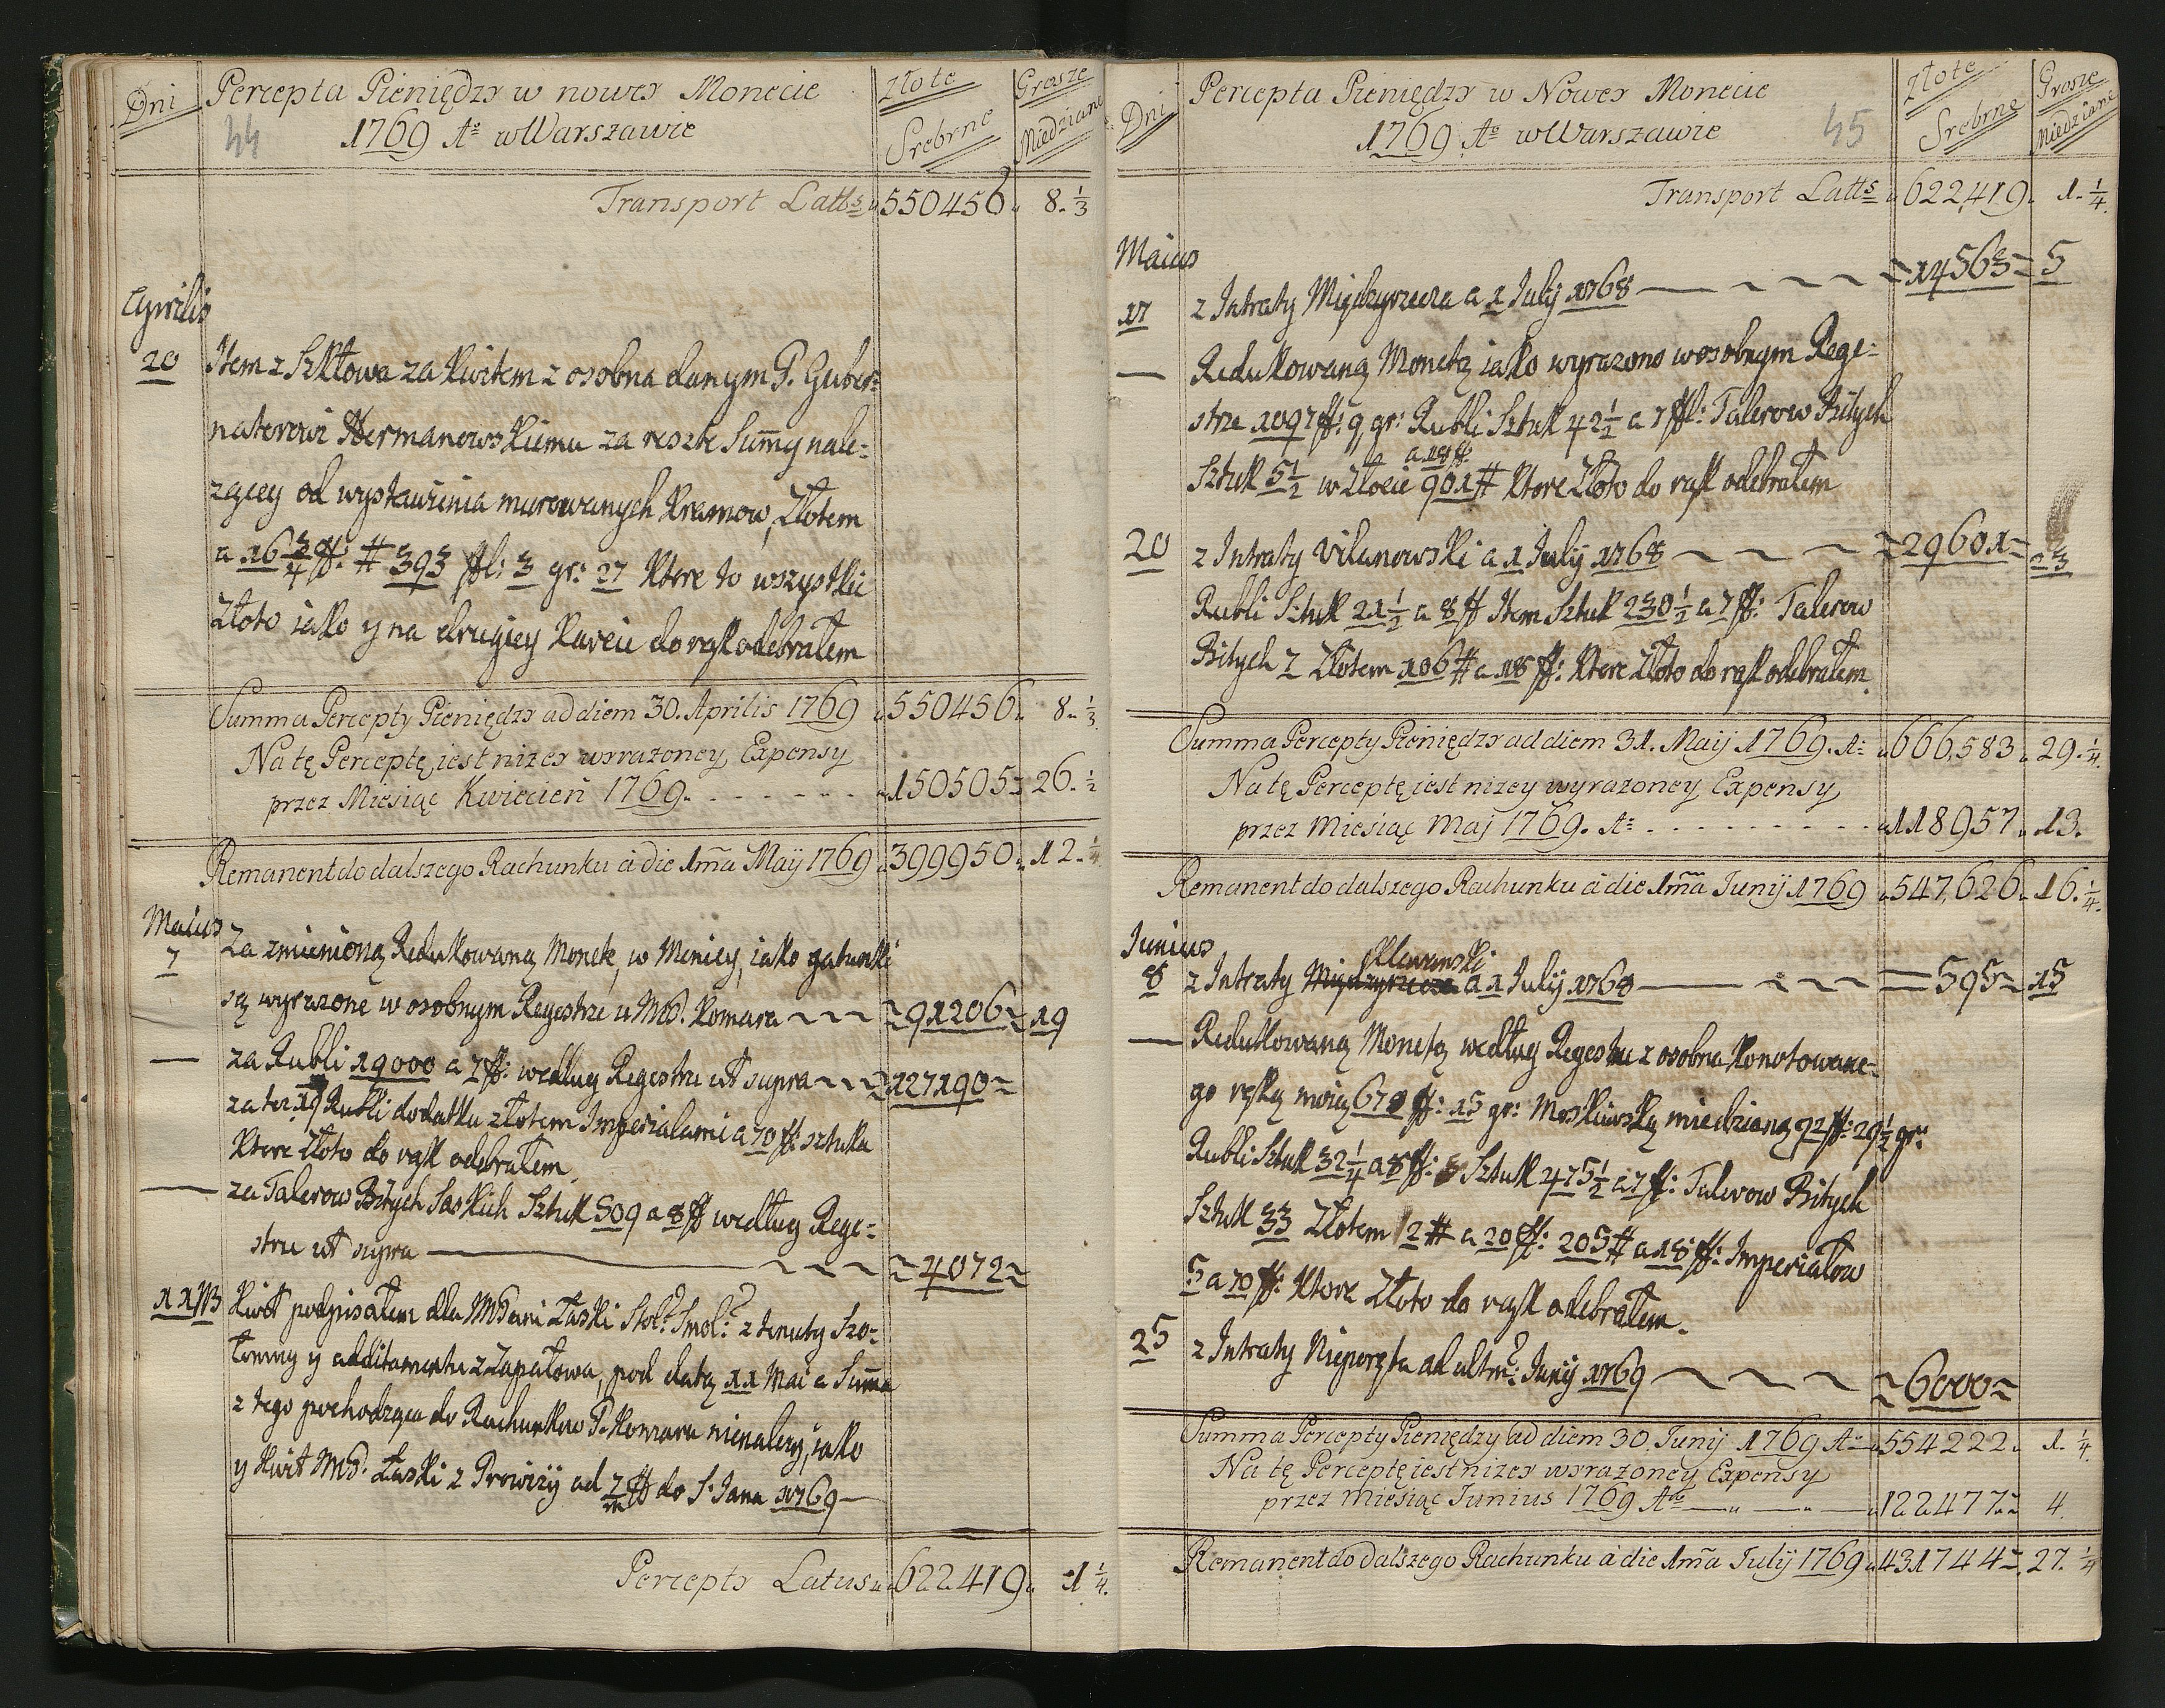 Dni Percepta Pieniędzy w nowey Monecie Złote Grosze
44 1769 Aº w Warszawie Srebrne Miedziane
Transport Latts 550456 8. 1/3
Aprilis
20 Item z Szkłowa za kwitem z osobna danym P. Guber=
natorowi Hermanowskiemu za reszte Summy nale=
zącey od wystawienia murowanych kramow, Złotem
a 16 3/4 ff: # 393 fl: 3 gr: 27 ktore to wszystkie
Złoto iako y na drugiey karcie do rąk odebrałem
Summa Percepty Pieniędzy ad diem 30. Aprilis 1769 550456 8. 1/3
Na tę Perceptę iest nizey wyrazoney Expensy
przez Miesiąc Kwiecień 1769. 150505 26. 1/2
Remanent do dalszego Rachunku a die 1ma Maij 1769 399950. 12. 1/4
Maius
7 Za zmienioną Redukowaną Monetę, w Menicy, iako gatunki
są wyrazone w osobnym Regestrze u MP. Komara 91206 19
— za Rubli 19000 a 7 ff: według Regestru ut supra 127190
za tez 19 Rubli dodatku złotem Imperialami a 70 ff: sztuka
ktore Złoto do rąk odebrałem
— za Talerow Bitych Saskich Sztuk 509 a 8 ff według Rege=
stru ut supra 4072
11 /B Kwit podpisałem dla MPani Łaski Stol: Smol: z tenuty Szo=
tomny y additamentu z Zapałowa, pod datą 11 Mai a Summa
z tego pochodząca do Rachunkow P. Komara nienalezy, iako
y kwit MP. Łaski z Prowizij ad 7/m ff do S. Jana 1769
Percepty Latus 622419 1 1/4.
Dni Percepta Pieniędzy w Nowey Monecie Złote Grosze
1769 Aº w Warszawie 45 Srebrne Miedziane
Transport Latts 622,419. 1. 1/4.
Maius
17 z Intraty Międzyrzecza a 1 Julij 1768 14563 5
— Redukowaną Monetą iako wyrazono w osobnym Rege=
strze 1097 ff: 9 gr: Rubli Sztuk 42 1/2 a 7 ffl: Talerow Bitych
a 18 ff
Sztuk 5 1/2 w Złocie 901 # ktore Złoto do rąk odebrałem
20 z Intraty Vilanowski a 1 Julij 1768 29601 23
Rubli Sztuk 21 1/2 a 8 ff Item Sztuk 230 1/2 a 7 ff: Talerow
Bitych 7 Złotem 106 # a 18 ff: ktore Złoto do rąk odebrałem
Summa Percepty Pieniędzy ad diem 31. Maij 1769. Aº 666,583. 29. 1/4.
Na tę Perceptę iest nizey wyrazoney Expensy
przez Miesiąc Maj 1769. Aº 118957. 13.
Remanent do dalszego Rachunku a die 1ma Junij 1769 547,626. 16. 1/4.
Junius
Klewanski
8 z Intraty Międzyrzecza a 1 Julij 1768 595 15
— Redukowaną Monetą według Regestru z osobna konotowane=
go ręką moią 670 ff: 15 gr: Moskiewską miedzianą 92 ff: 29 1/2 gr:
Rubli Sztuk 32 1/4 a 8 ff: Sztuk 475 1/2 a 7 ff: Talerow Bitych
Sztuk 33 Złotem 2 # a 20 ff: 205 # a 18 ff: Imperiałow
5 a 70 ff: ktore Złoto do rąk odebrałem.
25 z Intraty Nieporęta ad ultm: Junij 1769 6000
Summa Percepty Pieniędzy ad diem 30. Junij 1769 Aº 554222. 1. 1/4.
Na tę Perceptę iest nizey wyrazoney Expensy
przez miesiąc Junius 1769 Aº 122477 4.
Remanent do Dalszego Rachunku a die 1ma Julij 1769 431744 27. 1/4